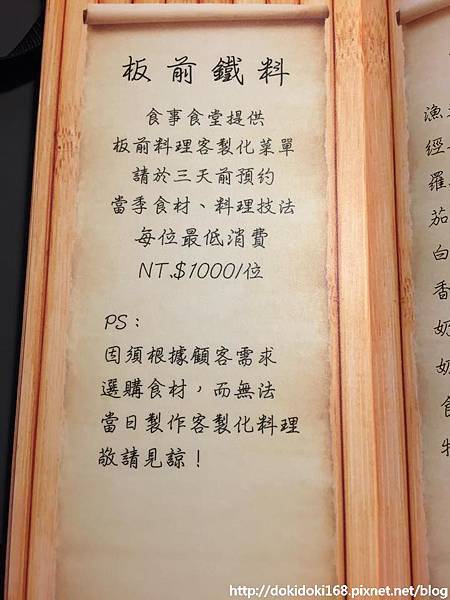 板前鐵料
食事食堂提供
板前料理客製化菜單
請於三天前預約
當季食材、料理技法
每位最低消費
NT.$1000/位
PS：
因須根據顧客需求
選購食材，而無法
當日製作客製化料理
敬請見諒！
漁
經
羅
茄
白
香
奶
奶
食
特
http://dokidoki168.pixnet.net/blog